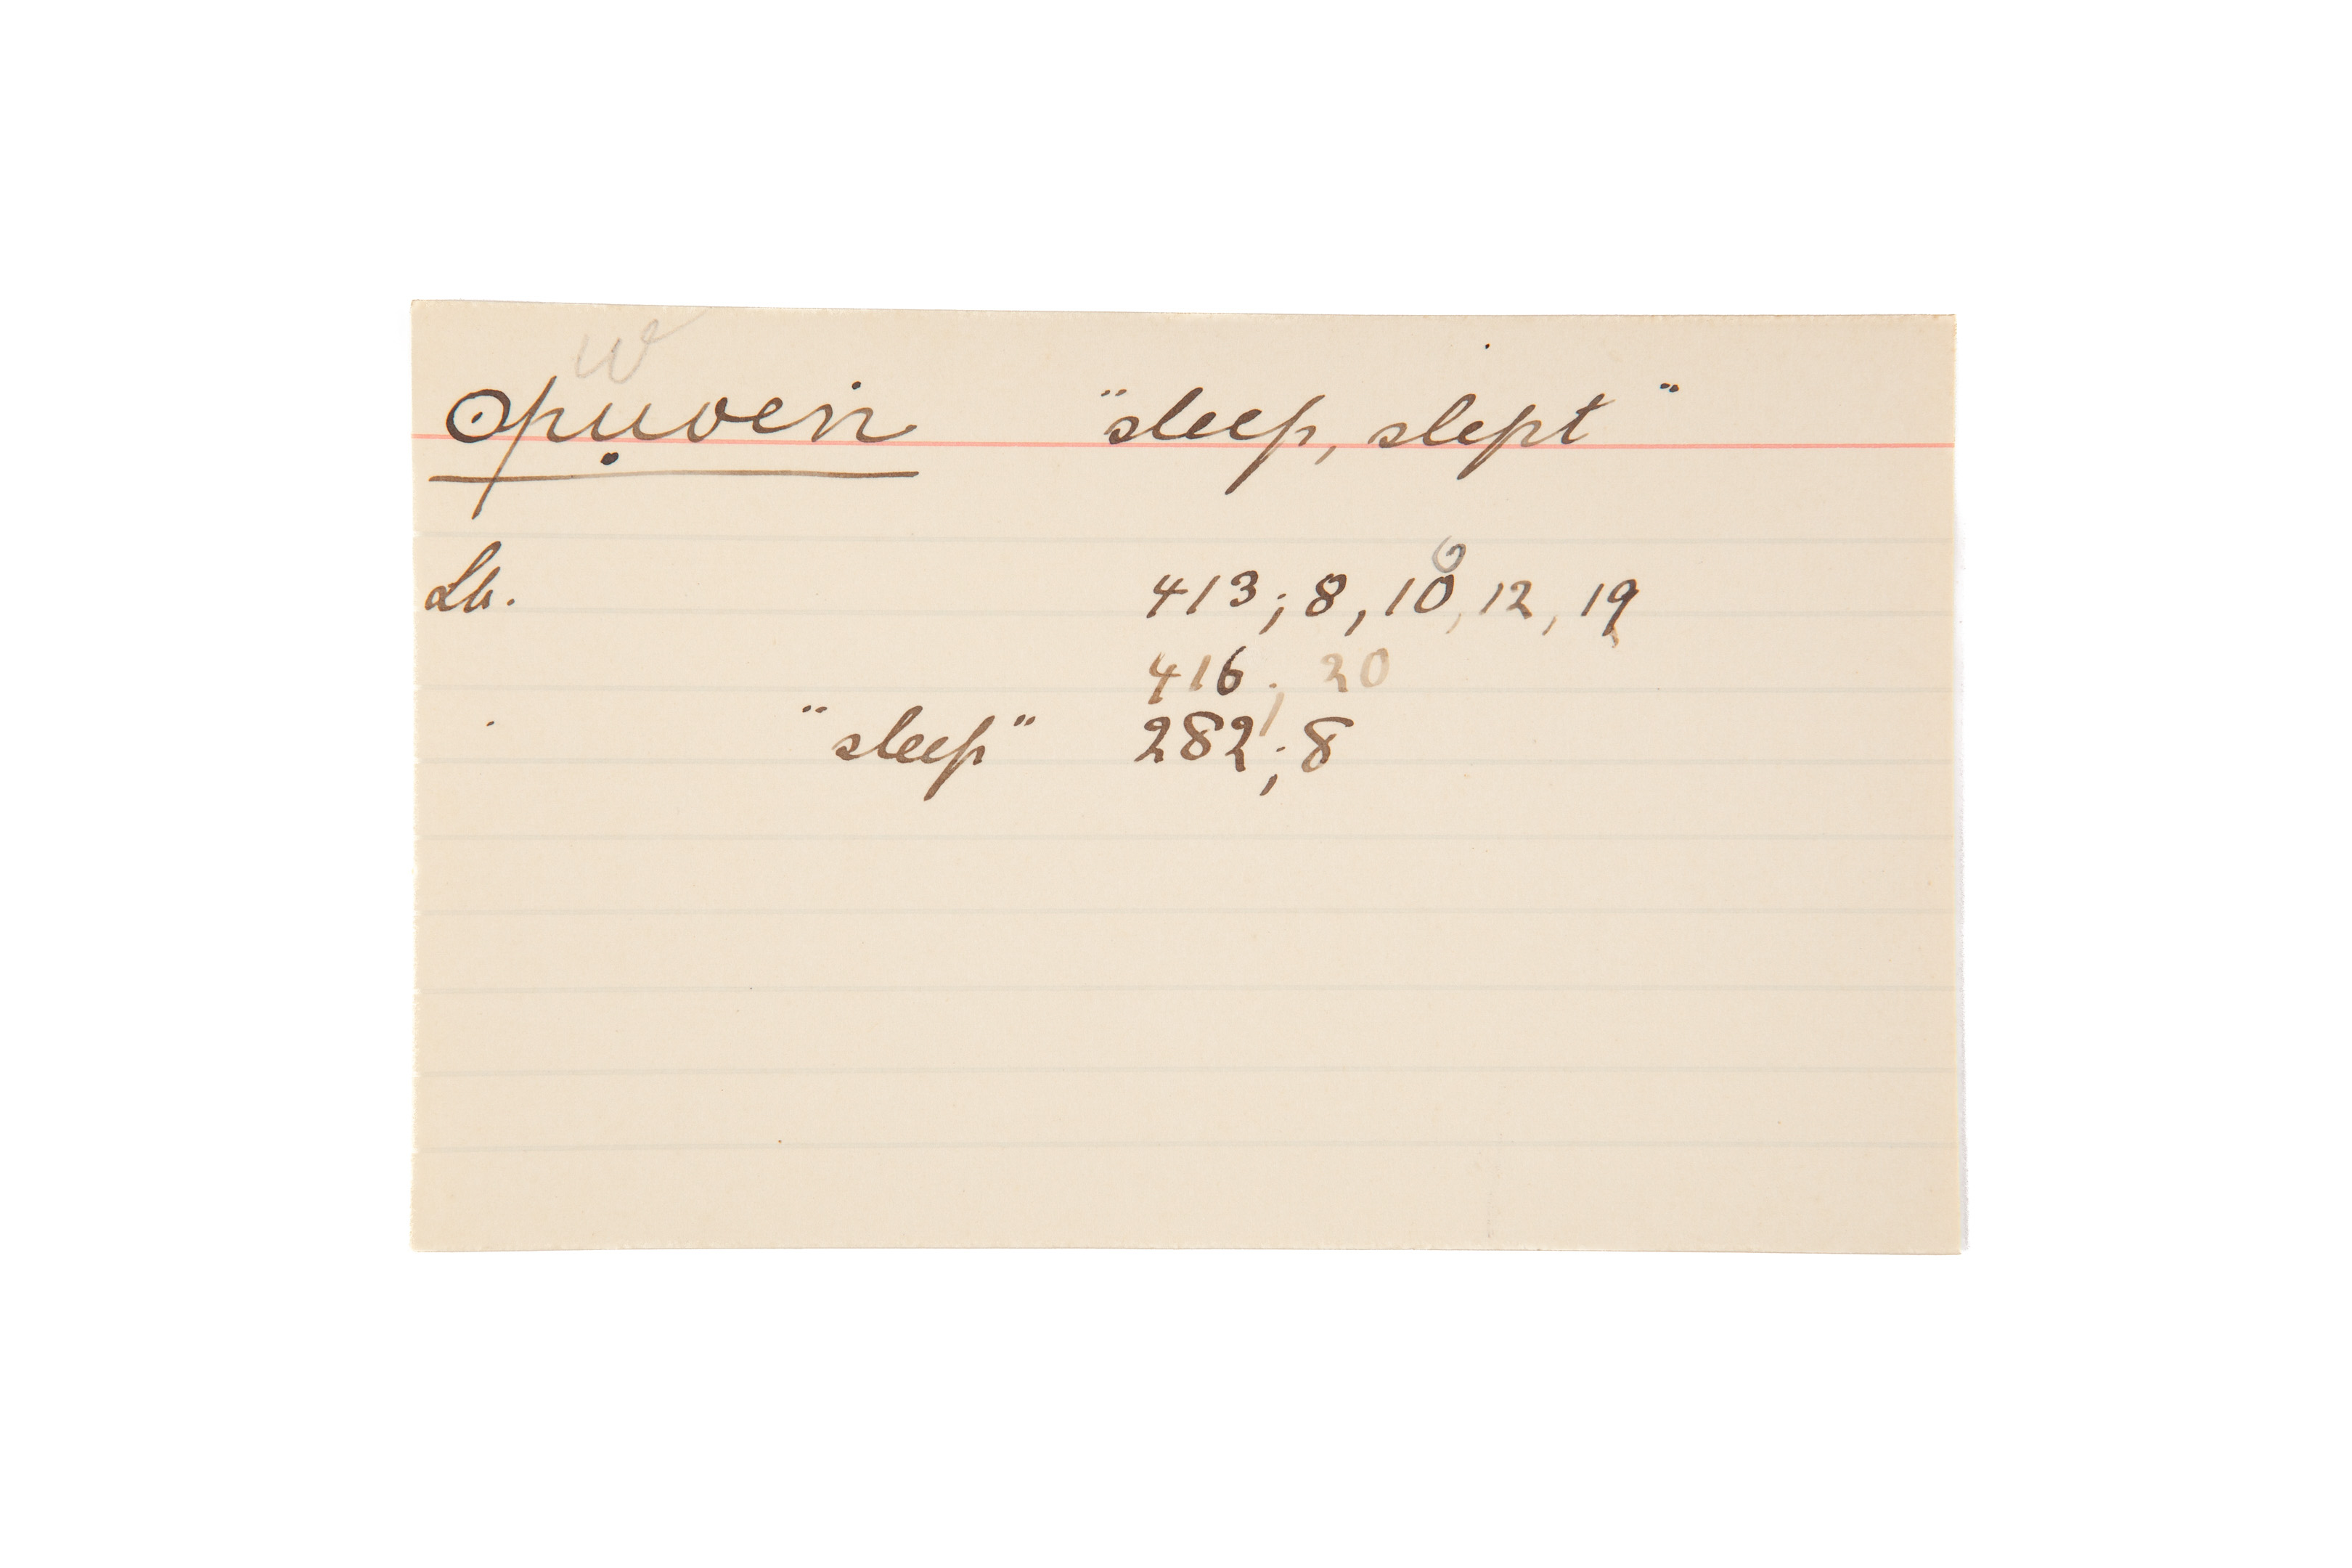 w
ʘpụoin "sleep, slept"
413; 8, 10, 12, 19
416; 20
"sleep" 282; 8